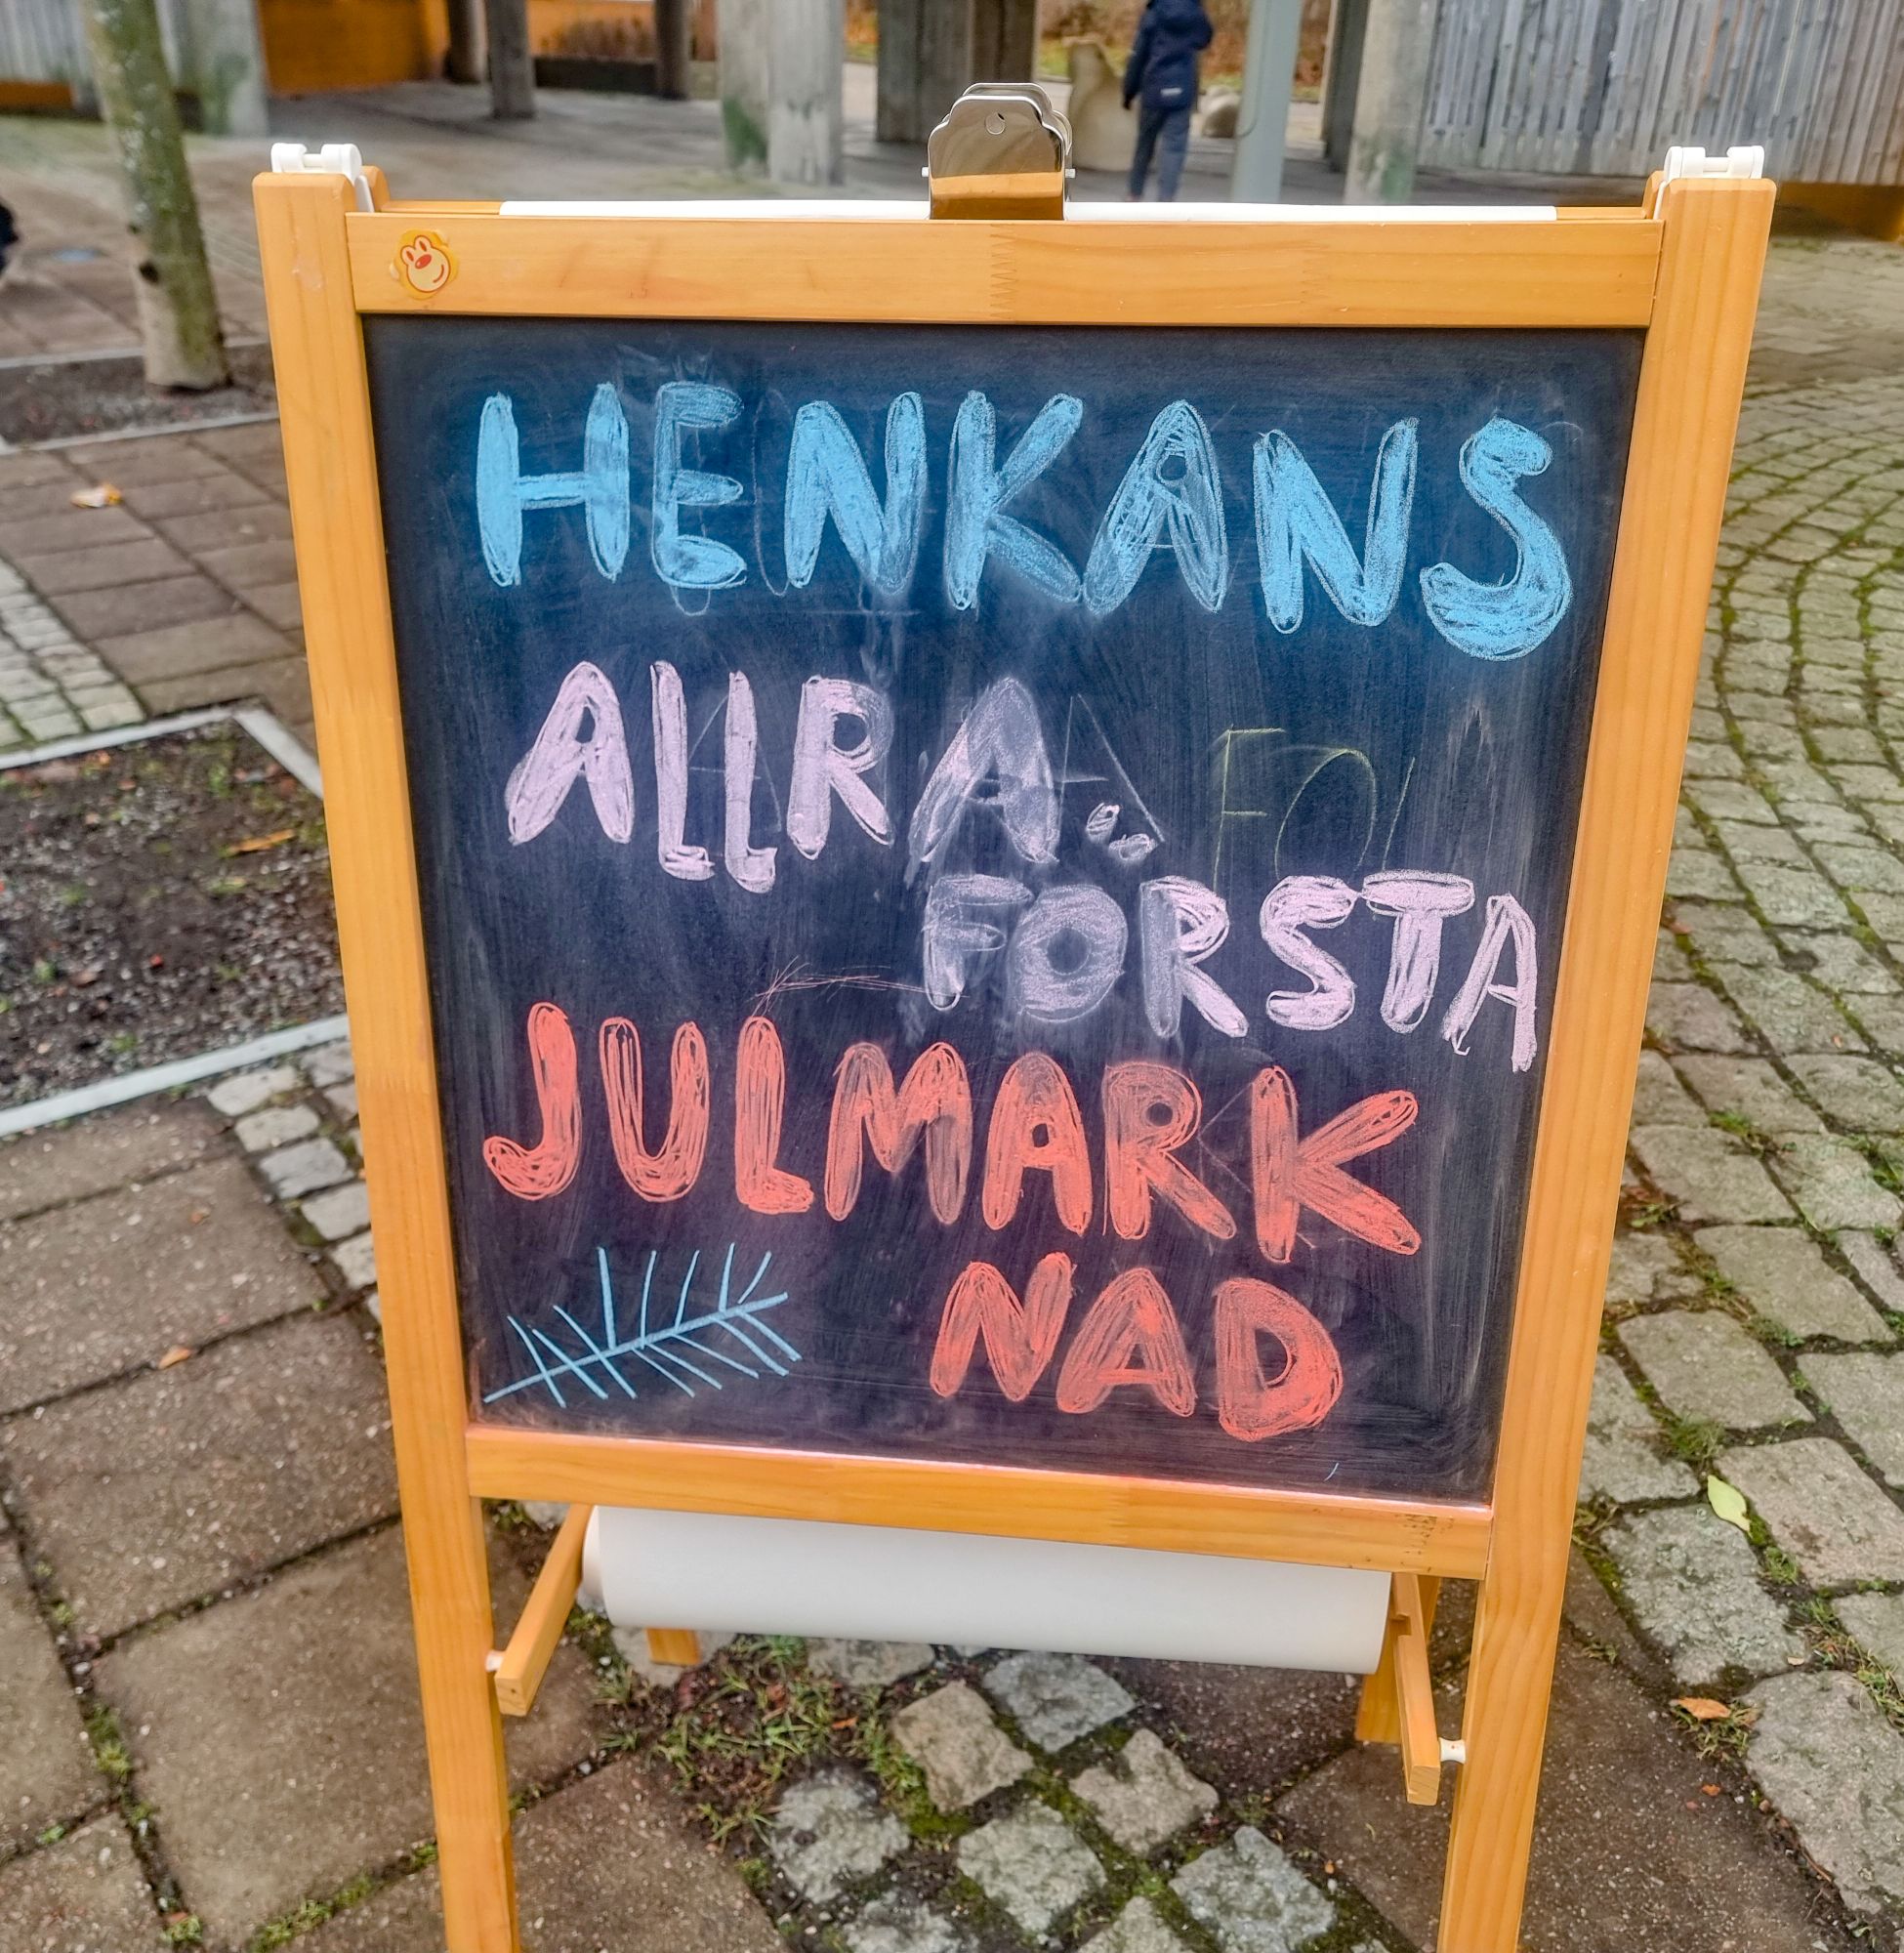 HENKANS
ALLRA
FÖRSTA
JULMARK
NAD